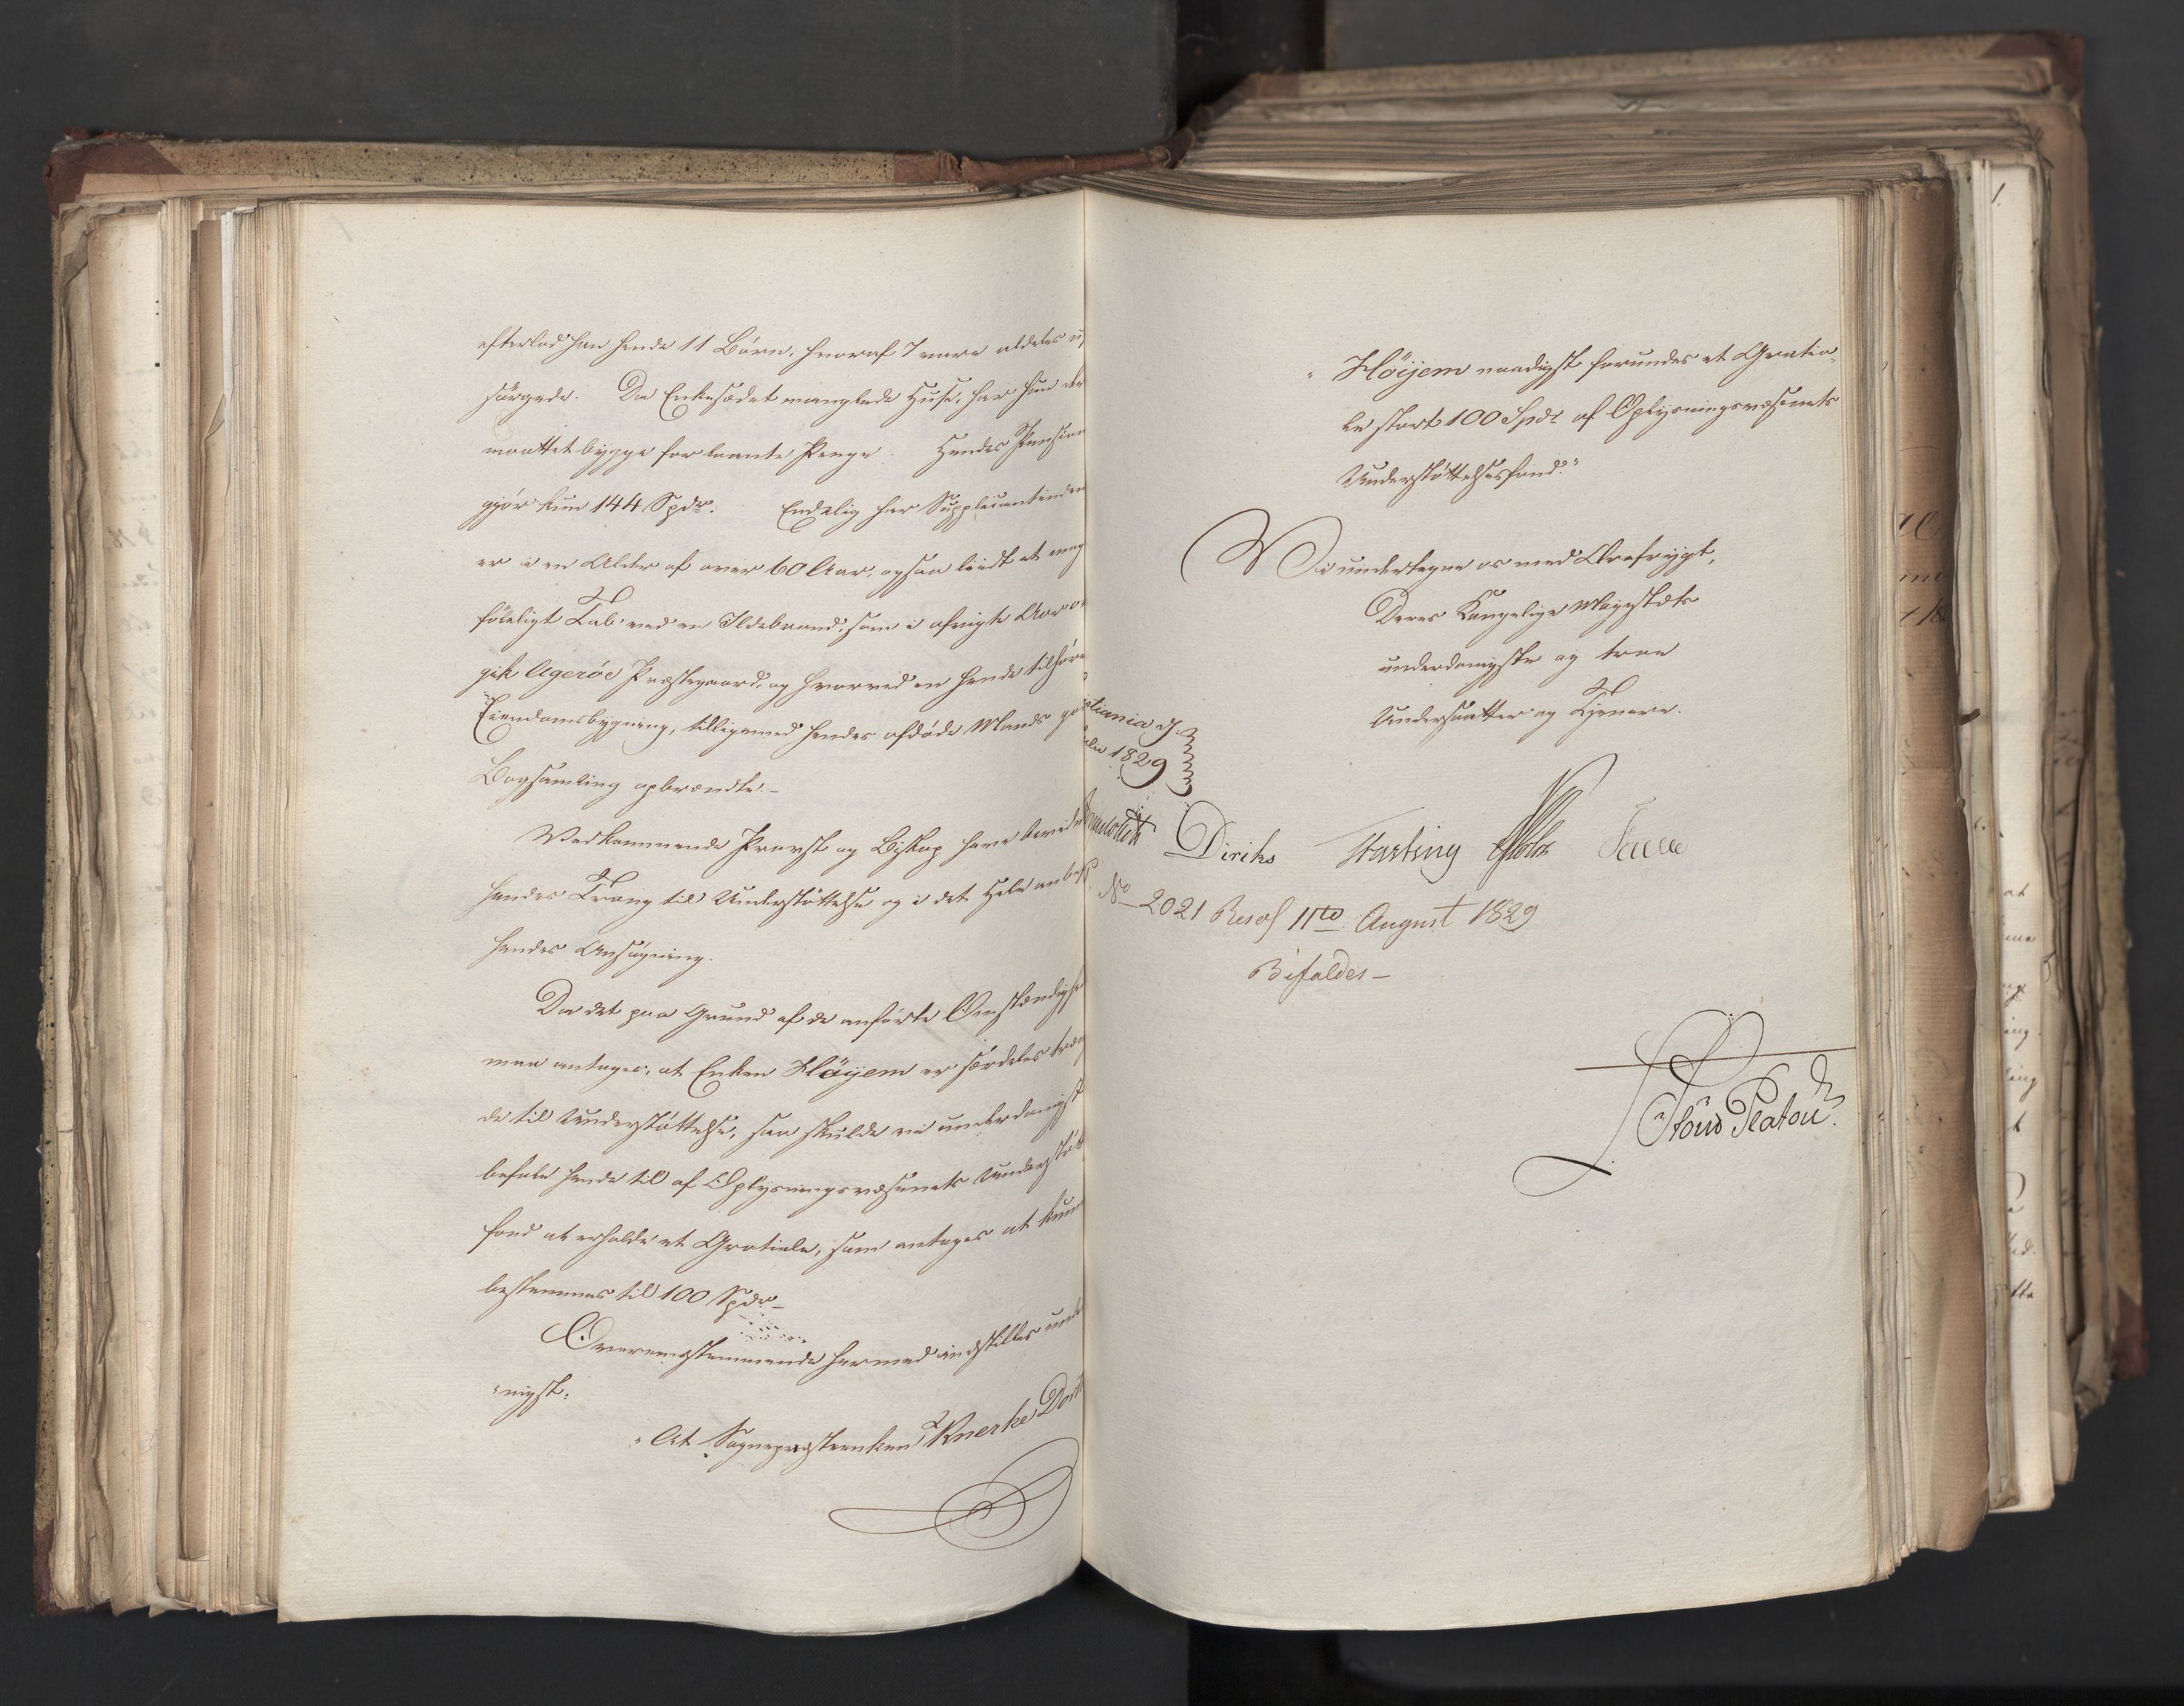 efterlod han hende 11 Børn, hvoraf 7 vare aldeles u,
sørgede. Da Enkesædet manglede Huse, har hun der
maattet bygge for laante Penge. Hendes Pension
gjør kun 144 Spdr. Endelig har Supplicantinden
er i en Alder af over 60 Aar, ogsaa liidt et meg
føleligt Tab ved en Ildebrand, som i afvigte Aar o
gik Agerøe Præstegaard, og hvorved en hende tilhøre
Eiendomsbygning, tilligemed hendes afdøde Mands go
Bogsamling opbrændte.-
Vedkommende Provst og Biskop have bevidn
hendes Trang til Understøttelse og i det Hele anbef
hendes Ansøgning.
Da det paa Grund af de anførte Omstændighe
maa antages, at Enken Høyem er særdeles træn
de til Understøttelse, saa skulde vi underdanigst
befale hende til af Oplysningsvæsenets Understøtt
fond at erholde et Gratiale, som antages at kun
bestemmes til 100 Spdr-
Overeensstemmende hermed indstilles und
nigst:
"At Sognepræsteenken Knerke Dort
"Höijem naadigst forundes et Gratia-
le stort 100 Spdr af Oplysningsvæsenets
Understøttelsesfond."
Vi undertegne os med Ærefrygt,
Deres Kongelige Majestæts
underdanigste og troe
Undersaatter og Tjenere.
tiania d.
ulii 1829
Diriks Harbing Holst
No 2021 Resol 11te August 1829
Bifaldes-
Stoud Platou